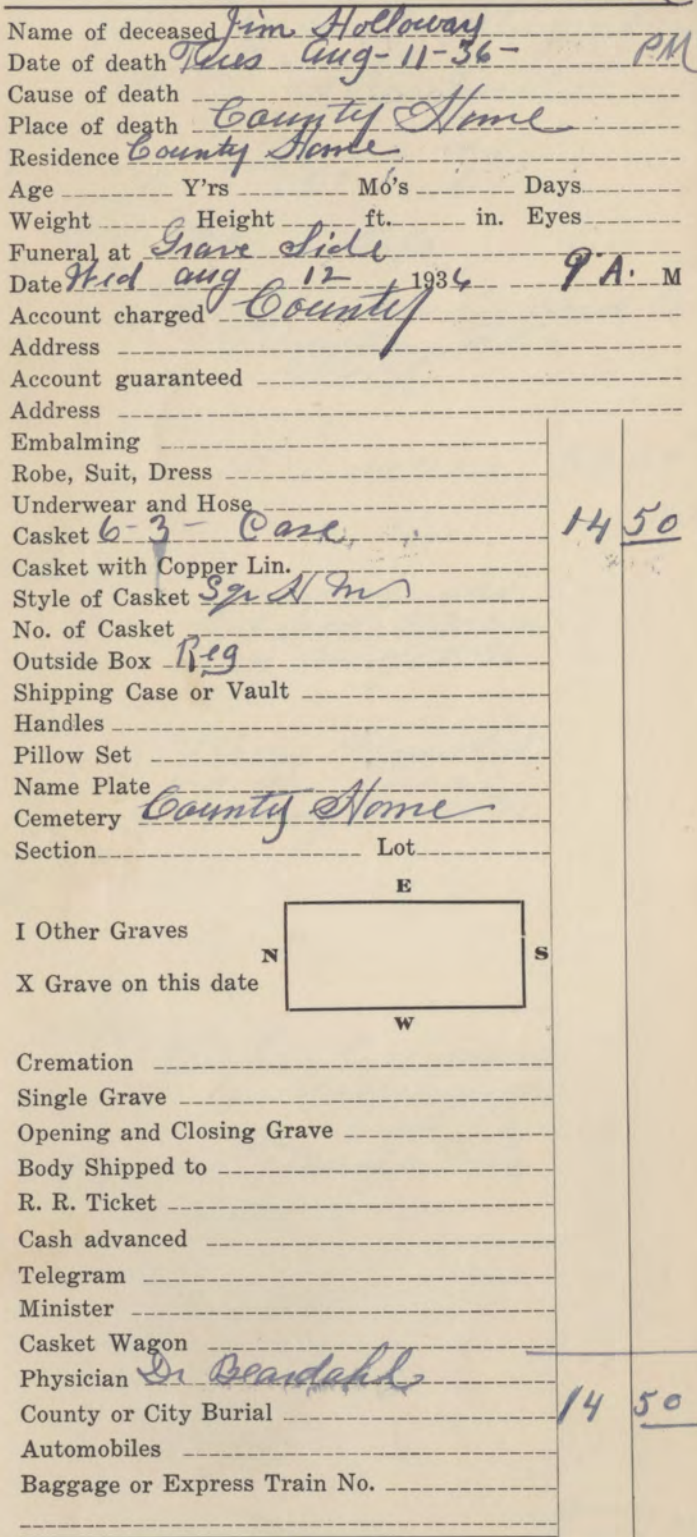 Name of deceased Jim Holloway
Date of death Tues Aug-11-36- PM
Cause of death
Place of death County Home
Residence County Home
Age Y'rs Mo's Days
Weight Height ft. in. Eyes
Funeral at Grave Side
Date Wed Aug 12 1936 9 A. M
Account charged County
Address
Account guaranteed
Address
Embalming
Robe, Suit, Dress
Underwear and Hose
Casket 6-3- Case 14 50
Casket with Copper Lin.
Style of Casket Sqr
No. of Casket
Outside Box Reg
Shipping Case or Vault
Handles
Pillow Set
Name Plate
Cemetery County Home
Section Lot
E
I Other Graves
N S
X Grave on this date
W
Cremation
Single Grave
Opening and Closing Grave
Body Shipped to
R. R. Ticket
Cash advanced
Telegram
Minister
Casket Wagon
Physician Dr
County or City Burial 14 50
Automobiles
Baggage or Express Train No.